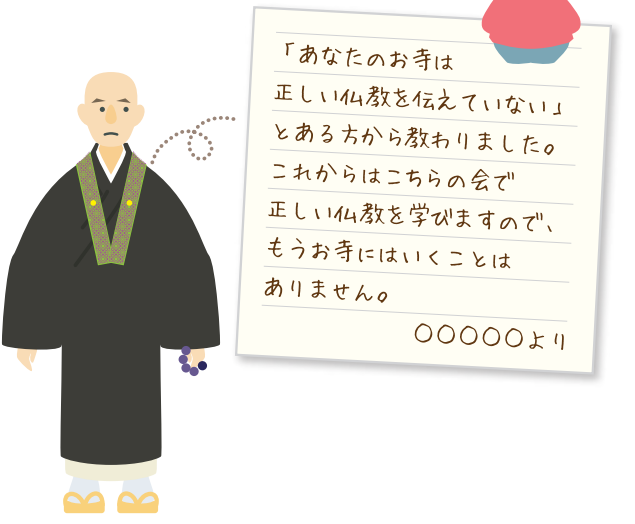 「あなたのお寺は
正しい仏教を伝えていない」
とある方から教わりました。
これからはこちらの会で
正しい仏教を学びますので、
もうお寺にはいくことは
ありません。
〇〇〇〇〇より